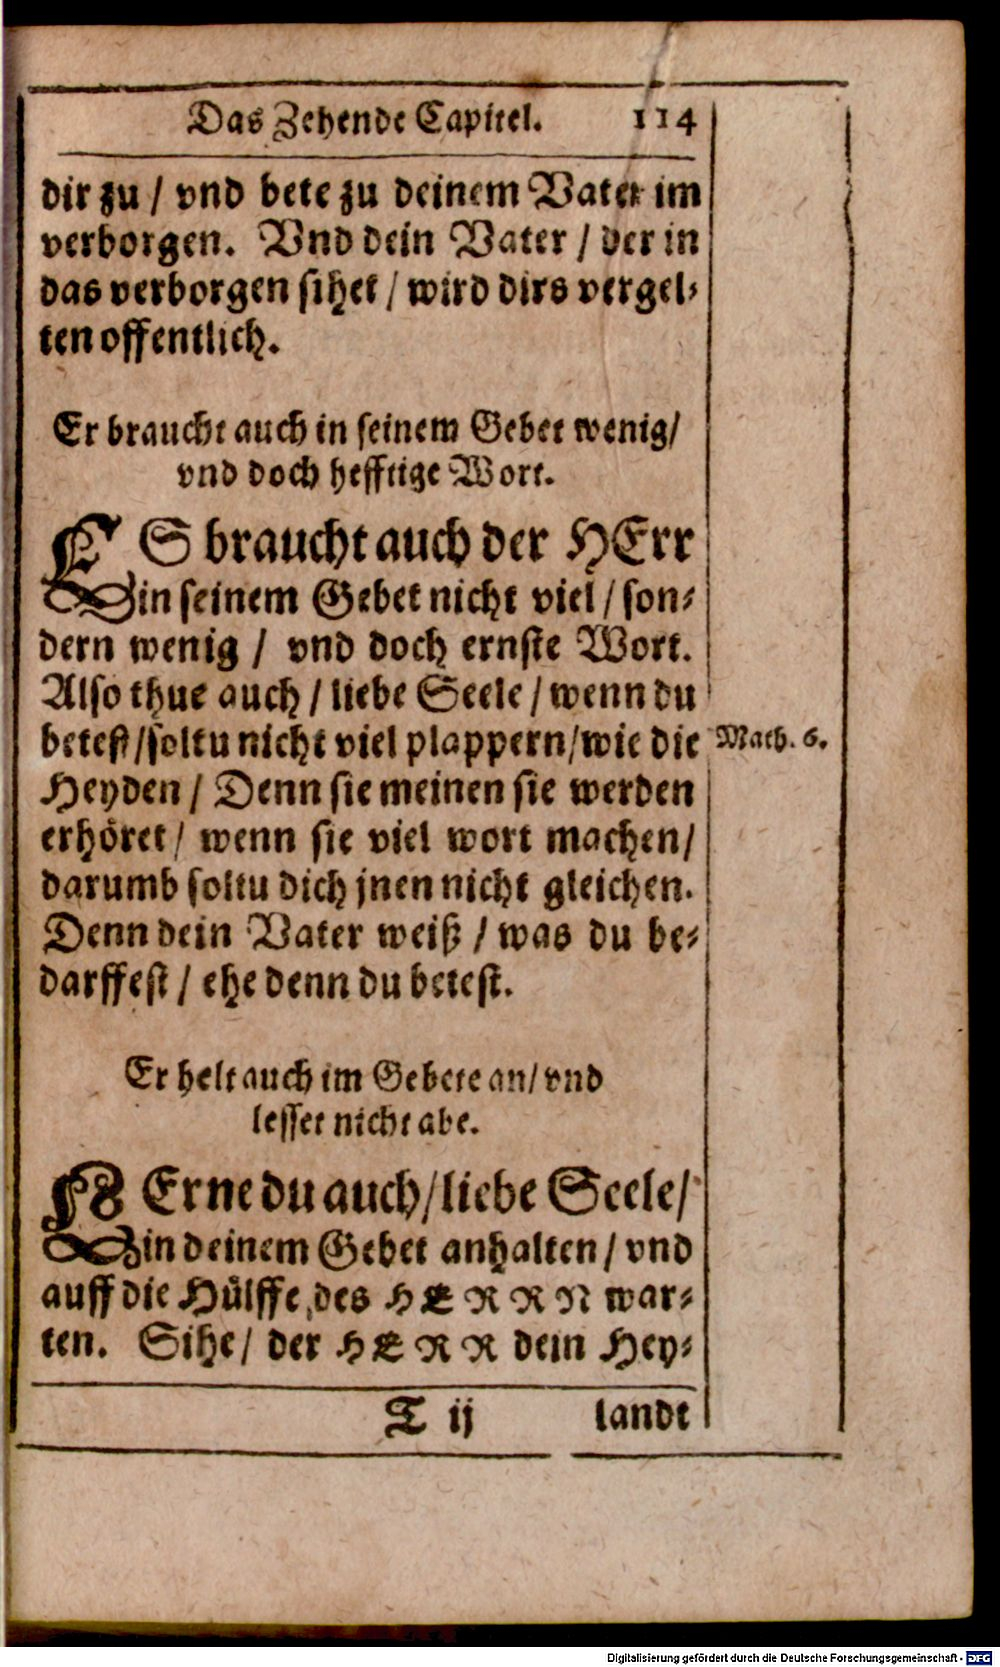 Das Zehende Capitel. 114
dir zu / vnd bete zu deinem Vater im
verborgen. Vnd dein Vater / der in
das verborgen sihet / wird dirs vergel-
ten offentlich.
Er braucht auch in seinem Gebet wenig /
vnd doch hefftige Wort.
ES braucht auch der HErr
in seinem Gebet nicht viel / son-
dern wenig / vnd doch ernste Wort.
Also thue auch / liebe Seele / wenn du
betest / soltu nicht viel plappern / wie die
Math. 6.
Heyden / Denn sie meinen sie werden
erhöret / wenn sie viel wort machen /
darumb soltu dich jnen nicht gleichen.
Denn dein Vater weiß / was du be-
darffest / ehe denn du betest.
Er helt auch im Gebete an / vnd
lesset nicht abe.
LErne du auch / liebe Seele /
in deinem Gebet anhalten / vnd
auff die Hülffe des HERRN war-
ten. Sihe / der HERR dein Hey-
T ij landt
Digitalisierung gefördert durch die Deutsche Forschungsgemeinschaft - DFG